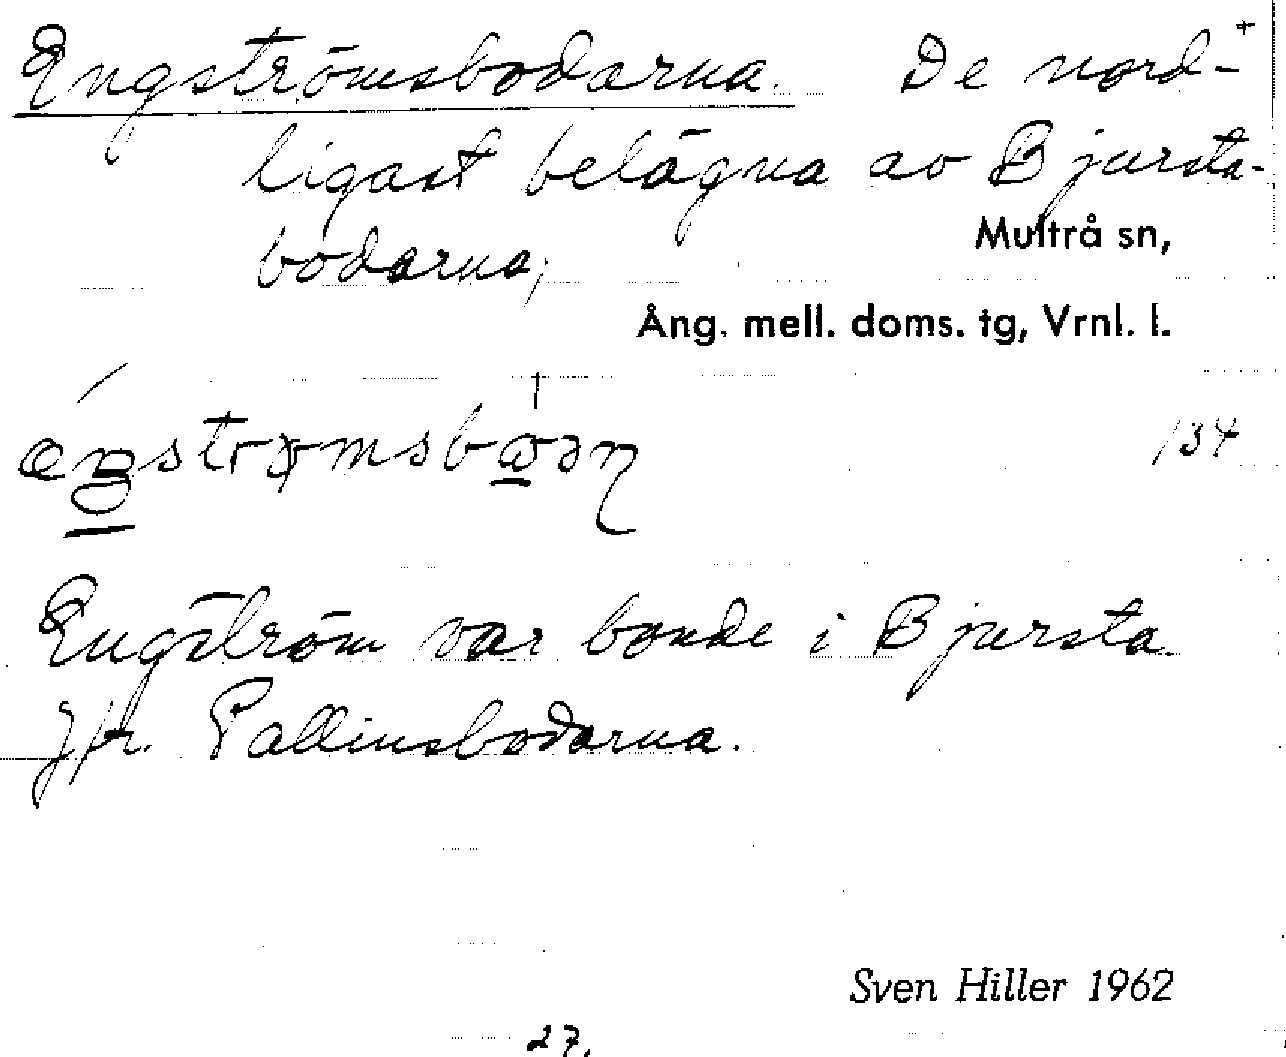 Engströmsbodarna. De nord-+
ligast belägna av Bjursta-
bodarna,
Multrå sn,
Ång. mell. doms. tg, Vrnl. l.
134
Engström var bonde i Bjursta.
Jfr. Pallinsbodarna.
Sven Hiller 1962
27.